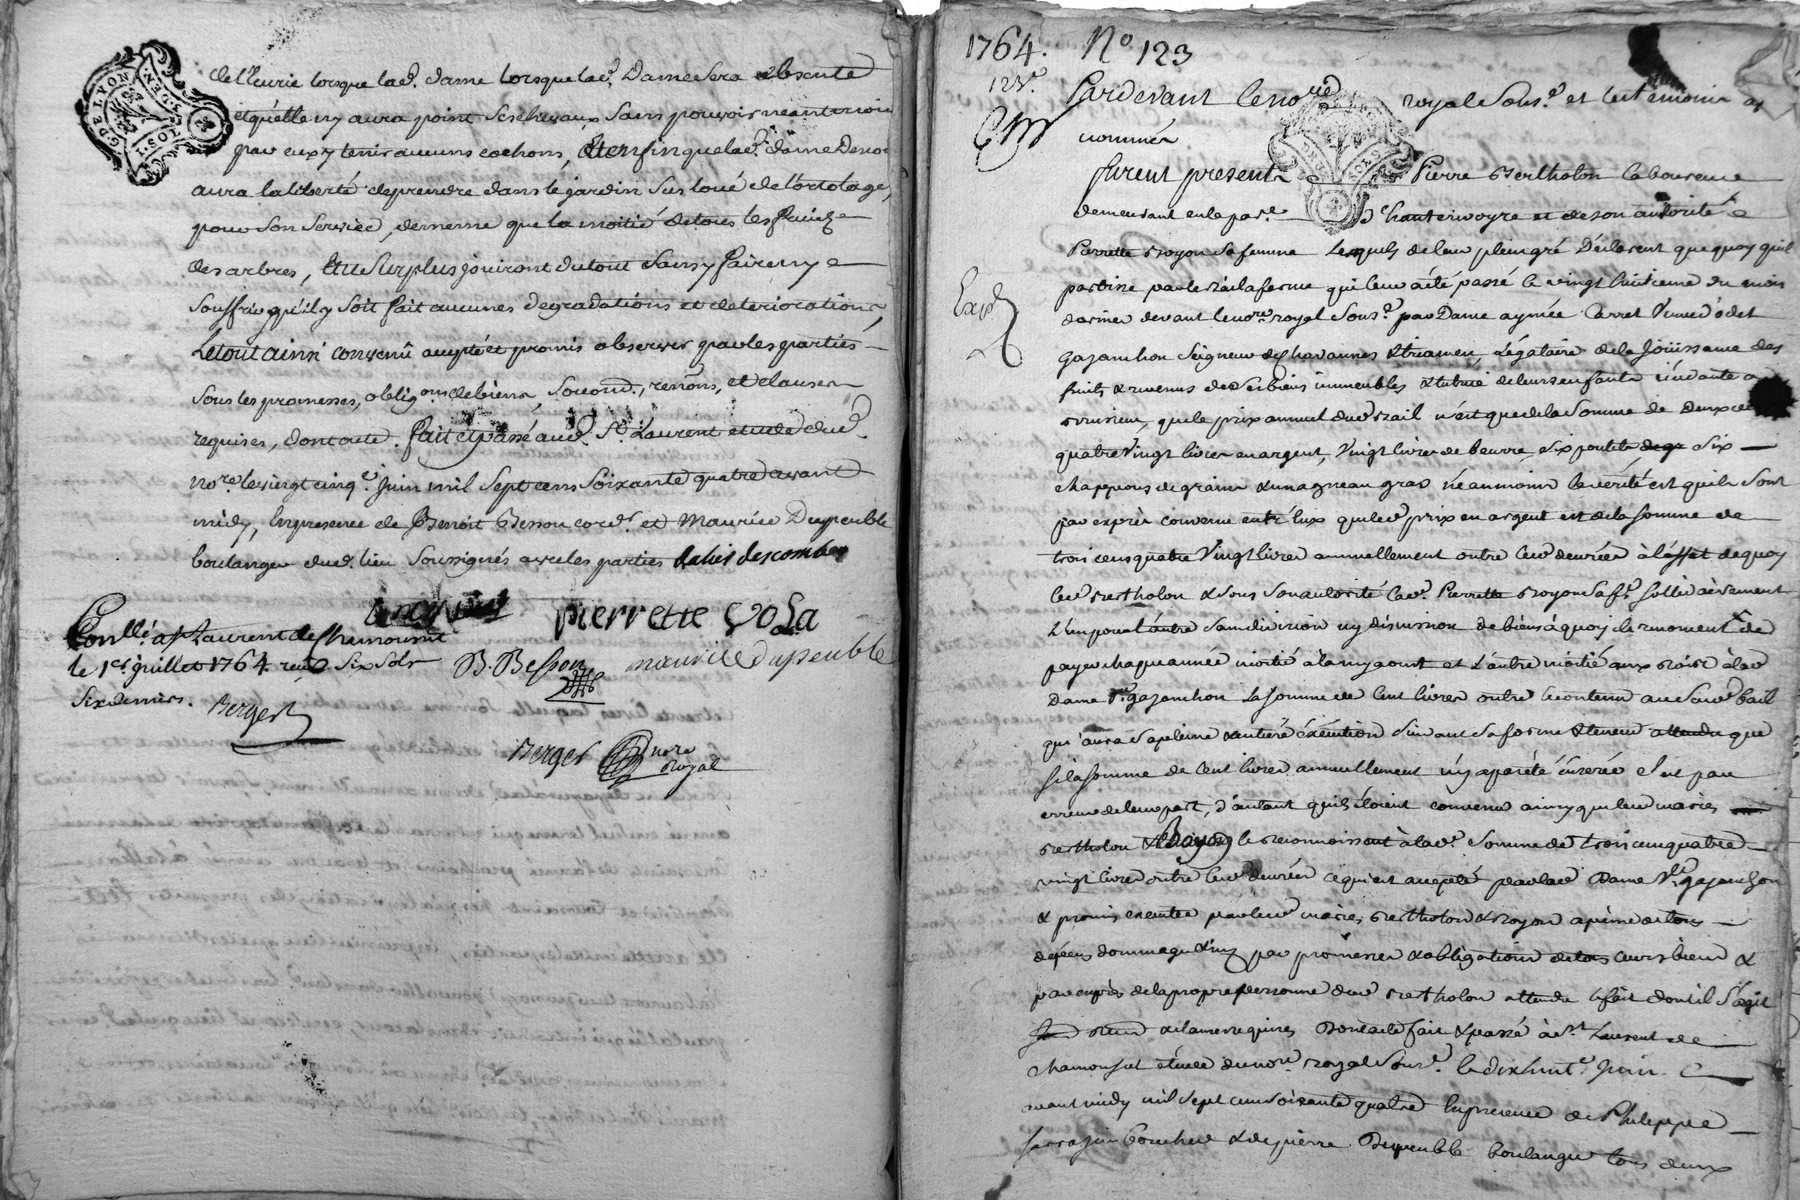 de l'Ecurie lorsque lad. dame lorsque lad. Dame sera absente
et qu'elle ny aura point ses chevaux, Sans pouvoir neantmoin
par eux y tenir aucuns cochons, Et enfin que lad. dame
aura la liberté de prendre dans le jardin sus loué de l'ortolage,
pour son Service, de meme que la moitié de tous les fruits
des arbres, Et au Surplus jouiront du tout Sans y faire ny
Souffrir qu'il y soit fait aucunes degradations et deteriorations,
Le tout ainsi convenu accepté et promis observer par les parties
Sous les promesses, obligons. de biens, Soumd., renons, et clauses
requises, dont acte. fait et passé aud. St. Laurent etude dud.
nore. le vingt cinqe. Juin mil Sept cens Soixante quatre avant
midy, En presence de Benoit Besson cordr. et Maurice Dupeuble
boulanger dud. lieu Soussignés avec les parties
pierrette
Conllé. a St Laurent de Chamousset
le 1er juillet 1764. reçu Six Sols
Six deniers.
Berger
B. Besson
maurice dupeuble
Berger nore royal
GDE LYON
1764. No 123
123e.
Pardevant le nore royal Sousé. et les temoins
nommés
furent presents Pierre Bertholon laboureur
demeurant en la parse. D'hauterivoyre et de son autorité
Pierrette Royon Sa femme Lesquels de leur plein gré Déclarent que quoy quil
par bail à ferme qui leur a été passé le vingt huitieme du mois
dernier devant le nore. royal Sousé. par Dame aymée Carret Veuve d'odet
gazanchon Seigneur de Chavannes & Légataire de la Joüissance des
fruits & revenus de Ses biens immeubles & tutrice de leurs enfants
que le prix annuel dud. Bail n'est que de la Somme de Deux cens
quatre Vingt livres en argent, Vingt livres de beurre, Six poulets Six
chappons de grain & un agneau gras néanmoins la vérité est quils Sont
par exprès convenu entr'Eux que led prix en argent est de la Somme de
trois cens quatre Vingt livres annuellement outre les d. denrées à l'effet de quoy
led Bertholon & Sous Son autorité lad. Pierrette Royon Sa fe. Sollidairement
L'un pour l'autre Sans division ny discussion de biens à quoy ils renoncent de
payer chaque année moitié à la my aoust et l'autre moitié aux Rois à lad
Dame Ve. gazanchon La Somme de Cent livres outre le contenu aud. Bail
qui aura sa pleine & entière éxécution Suivant Sa forme & teneur attendu que
Si la Somme de Cent livres annuellement n'y a pas été inserée C'est par
erreur de leur part, d'autant quils étoient convenu ainsy que led mariés
Bertholon & Royon le reconnoissent à lad. Somme de trois cens quatre
vingt livres outre led denrées ce qui est accepté par lad Dame Ve. gazanchon
& promis executer par lesd. mariés Bertholon & Royon a peine de tous
dépens dommages & int par promesses & obligations de tous leurs biens &
par exprès de la propre personne dud Bertholon attendu le fait dont il S'agit
& clauses requises Dont acte fait & passé à St Laurent de
chamousset étude du nore. royal Sousé. le dix huite. Juin
avant midy mil Sept cens Soixante quatre En presence de Philippe
boucher & de pierre Dupeuble boulanger tous deux